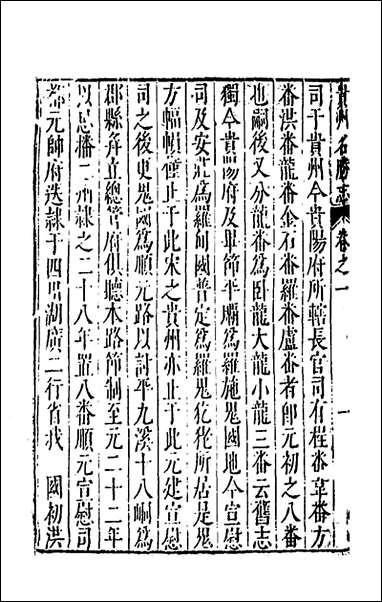 貴州名勝志 卷之一 一
司于貴州今貴陽府所轄長官司有程番韋番方
番洪番龍番金石番羅番盧番者即元初之八番
也嗣後又分龍番為臥龍大龍小龍三番云舊志
獨今貴陽府及畢節平壩為羅施鬼國地今宣慰
司及安莊為羅甸國普定為羅鬼犵狫所居是鬼
方幅幀僅止于此宋之貴州亦止于此元建宣慰
司之後更鬼國為順元路以討平九溪十八峒為
郡縣并立總管府俱聽本路節制至元二十二年
以思播二州隸之二十八年置八番順元宣慰司
都元帥府迭隸于四川湖廣二行省我 國初洪